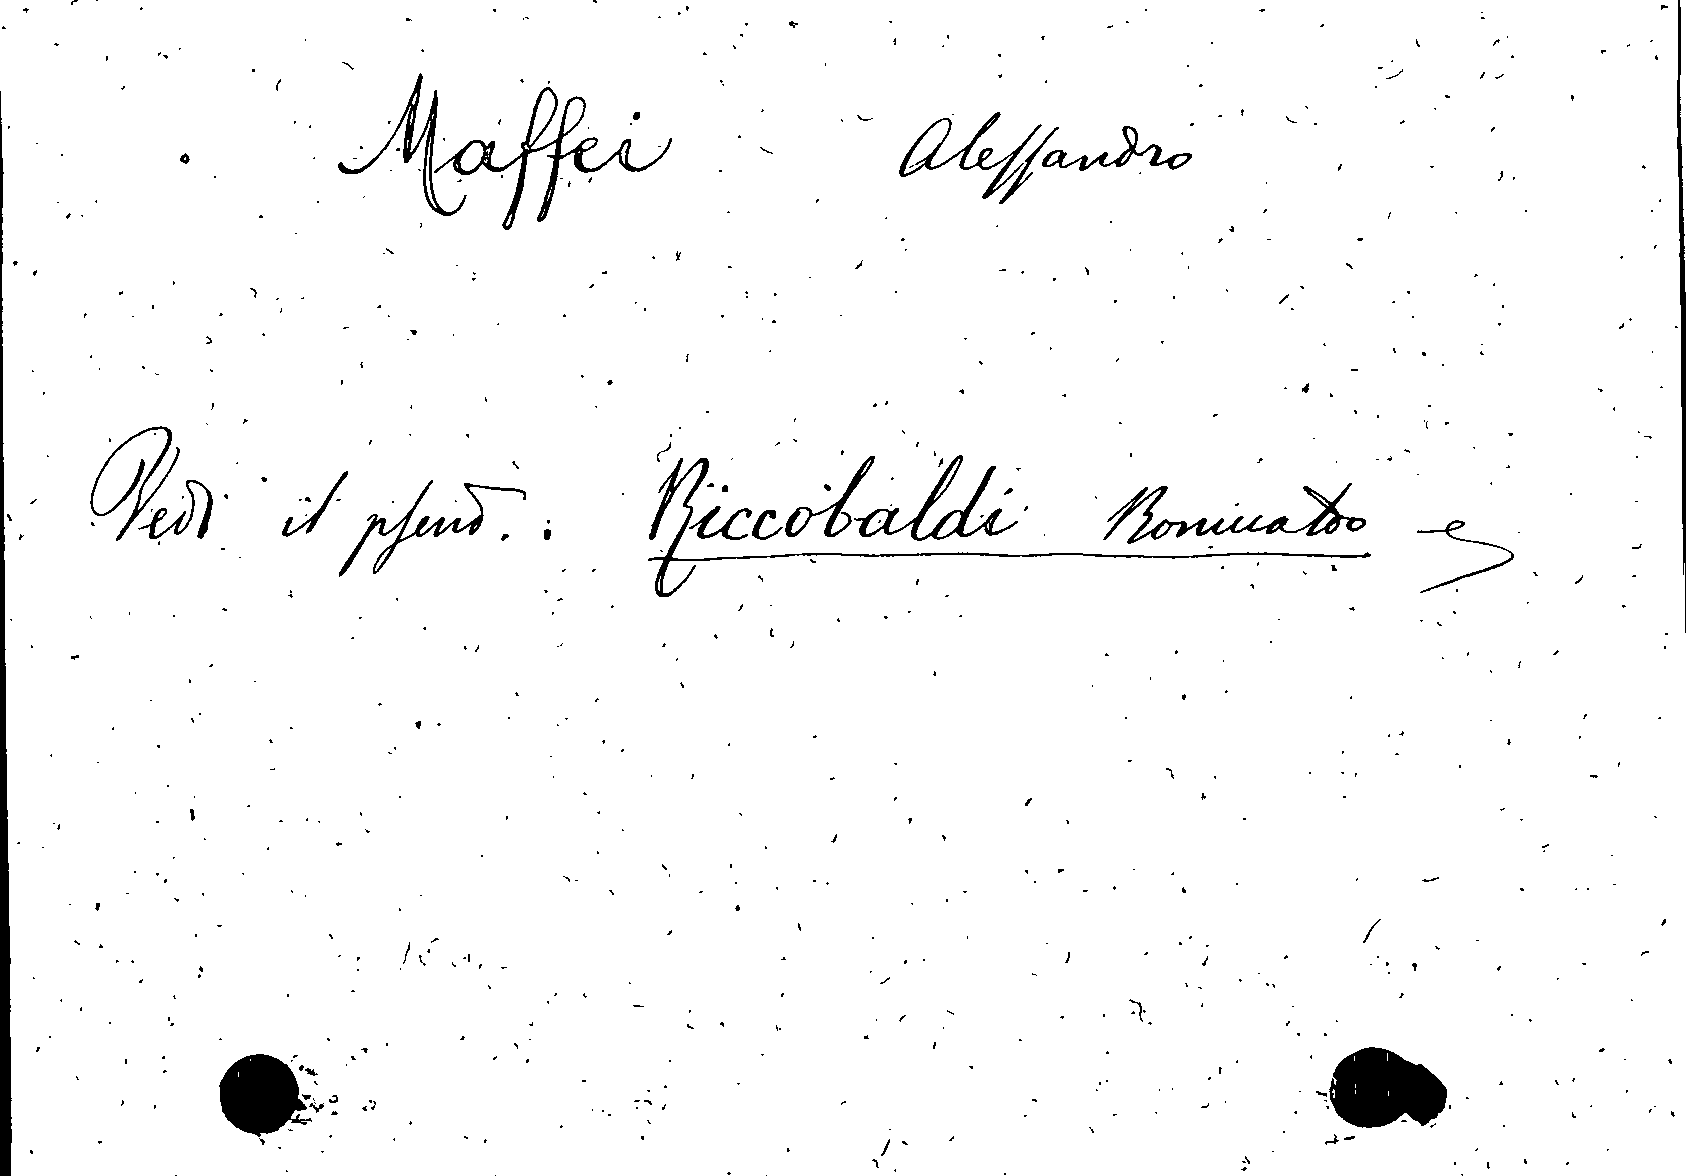 Maffei Alessandro
Vedi il pseud. : Riccobaldi Romualdo